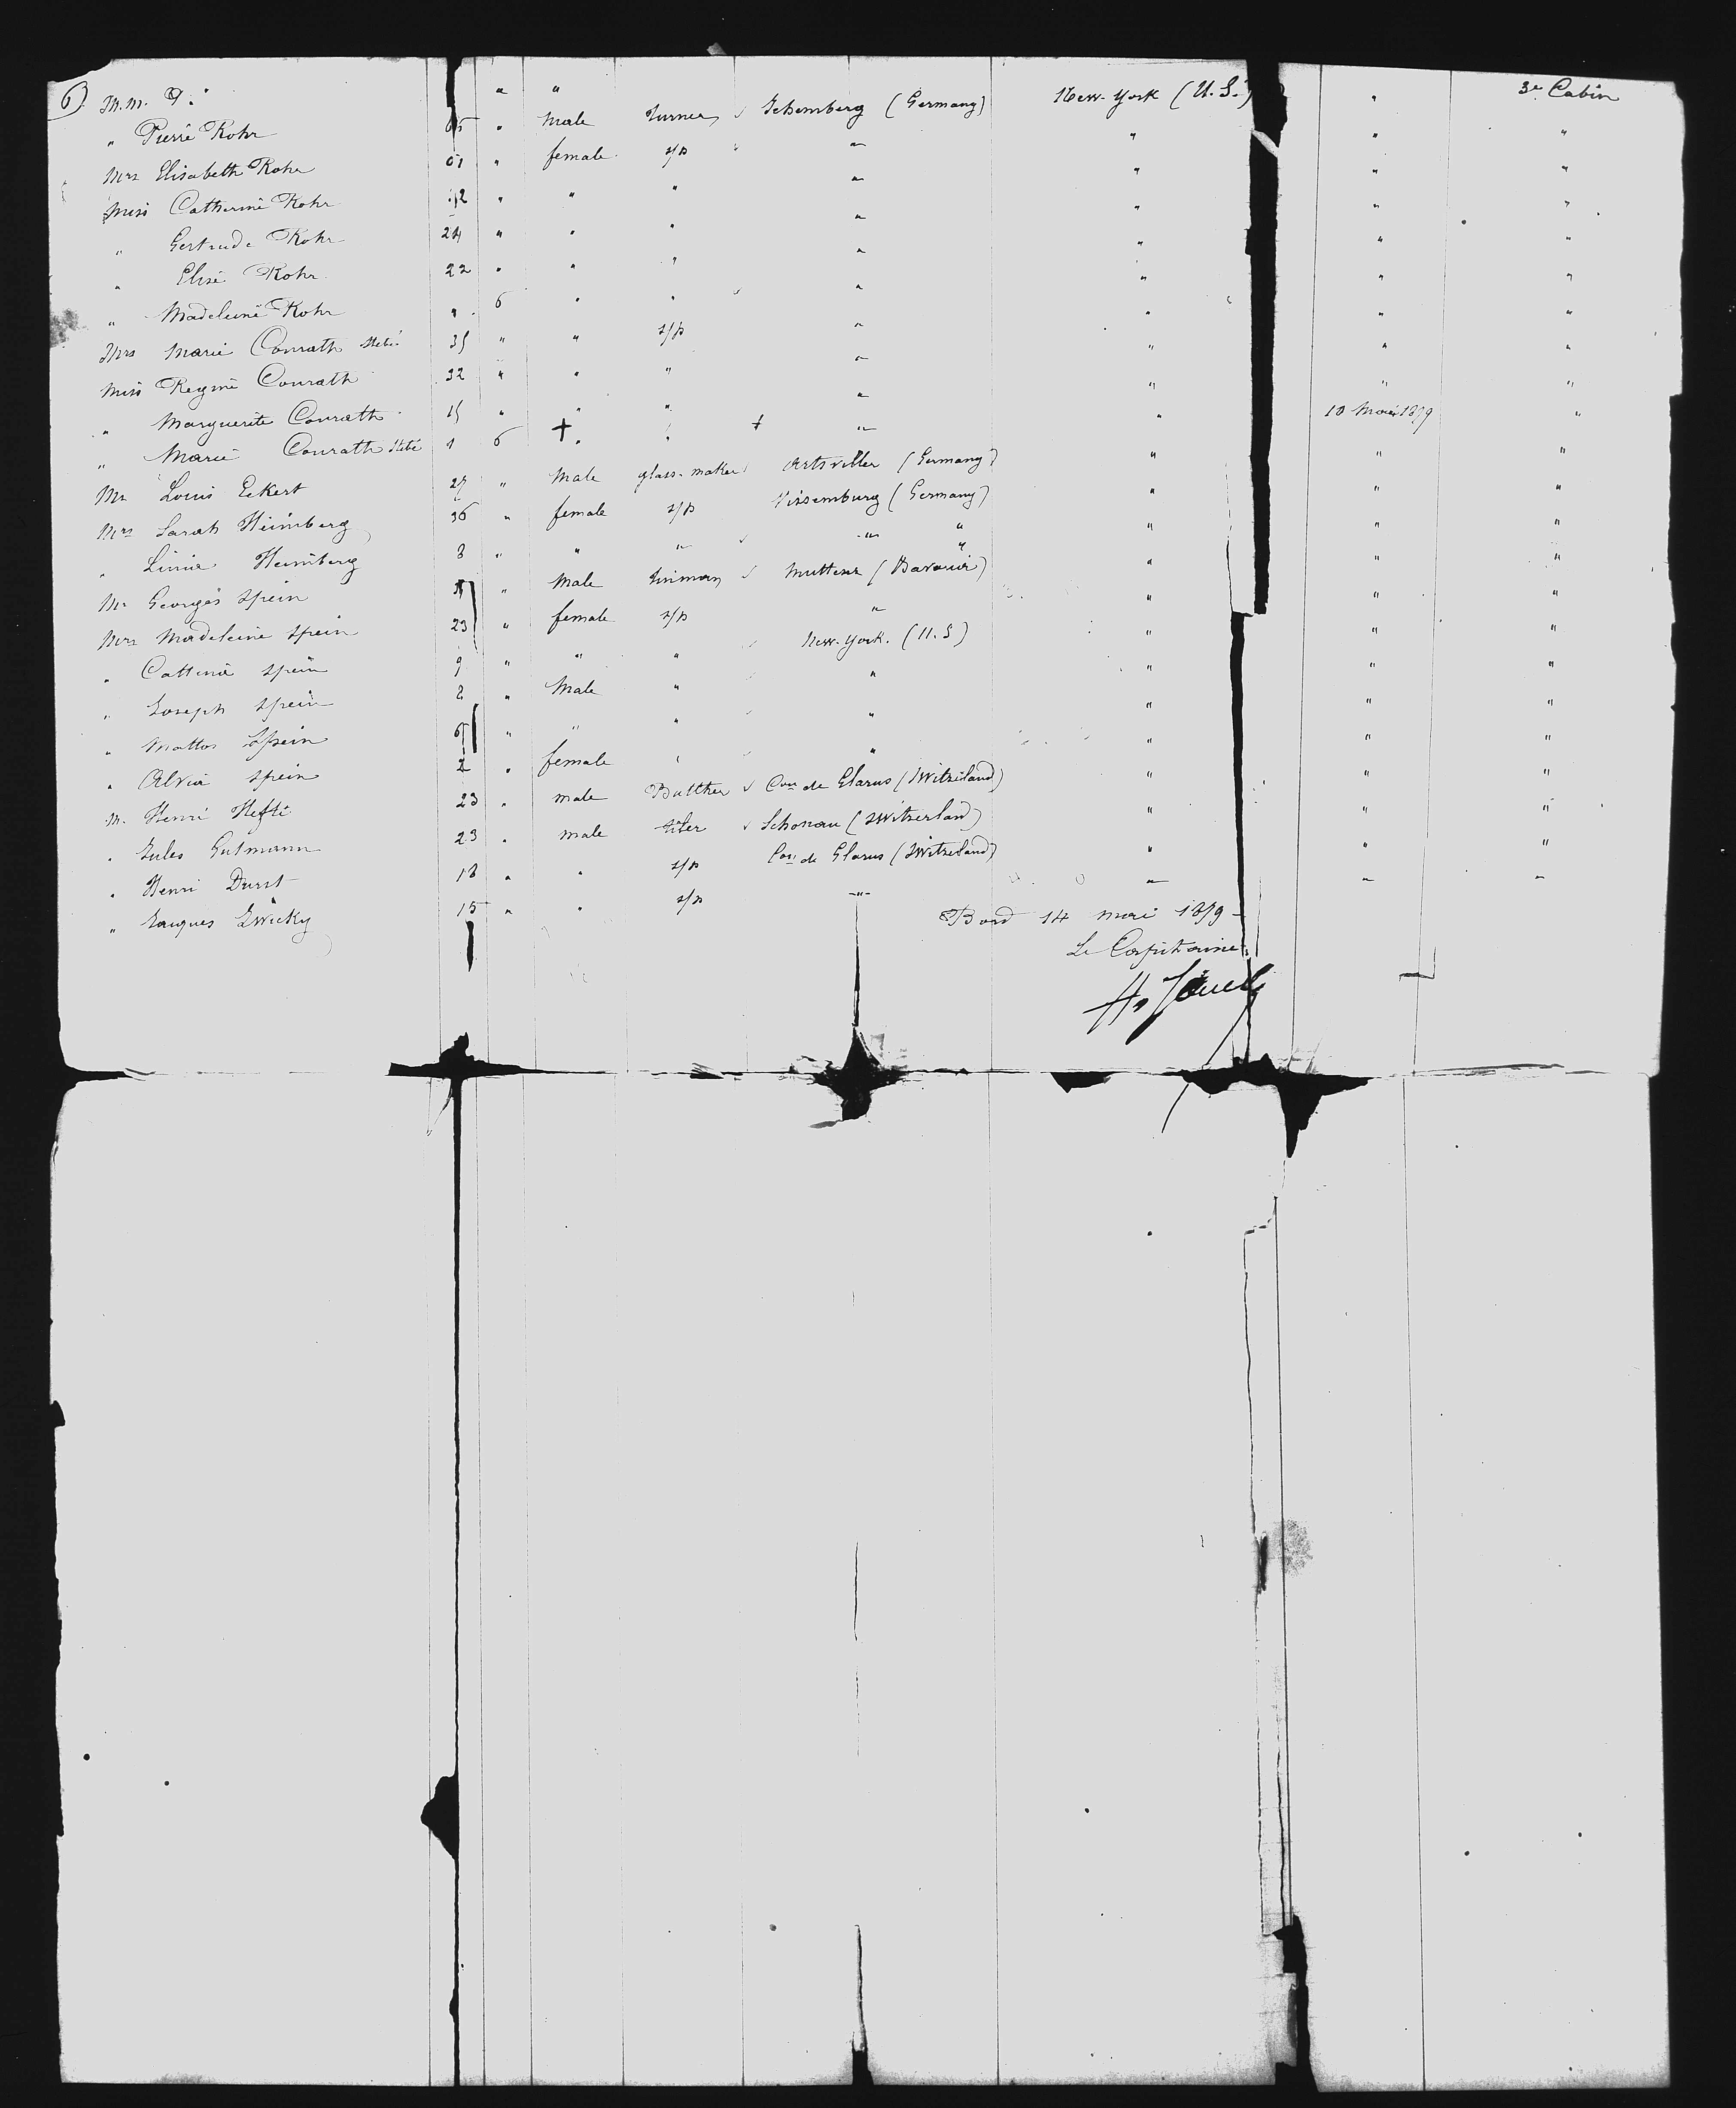 6) M.M. " " New-York (U.S.) " 3e Cabin
" Pierre Rohr " Male Turner Schemberg (Germany) " " "
Mrs Elisabeth Rohr 61 " female s/p " " " "
Miss Catherine Rohr " " " " " " "
" Gertrude Rohr 24 " " " " " " "
" Elise Rohr 22 " " " " " " "
" Madeleine Rohr " 6 " " " " " "
Mrs Marie Conrath 35 " " s/p " " " "
Miss Regine Conrath 32 " " " " " " "
" Marguerite Conrath 15 " " " " " 10 Mai 1879 "
" Marie Conrath 1 6 + " + " " " "
Mr Louis Eckert 27 " Male glass-maker Artsviller (Germany) " " "
Mrs Sarah Heimberg 36 " female s/p Vissemburg (Germany) " " "
" Heimberg 8 " " " " " " " "
Mr Georges Spein " Male Muttenz " " "
Mrs Madeleine Spein 23 " female s/p " " " "
" Spein 9 " " " New-York. (U.S) " " "
" Joseph Spein 8 " Male " " " " "
" Mattos Spein 6 " " " " " " "
" Spein 2 " female " " " " "
M. Henri Hefti 23 " male Butther Con de Glarus (Switzeland) " " "
" Jules Gutmann 23 " male Schonau (Switzerland) " " "
" Henri Durst 18 " " s/p Con de Glarus (Switzeland) " " "
" Jacques Zwicky 15 " " s/p "
Bord 14 mai 1879
Le Capitaine